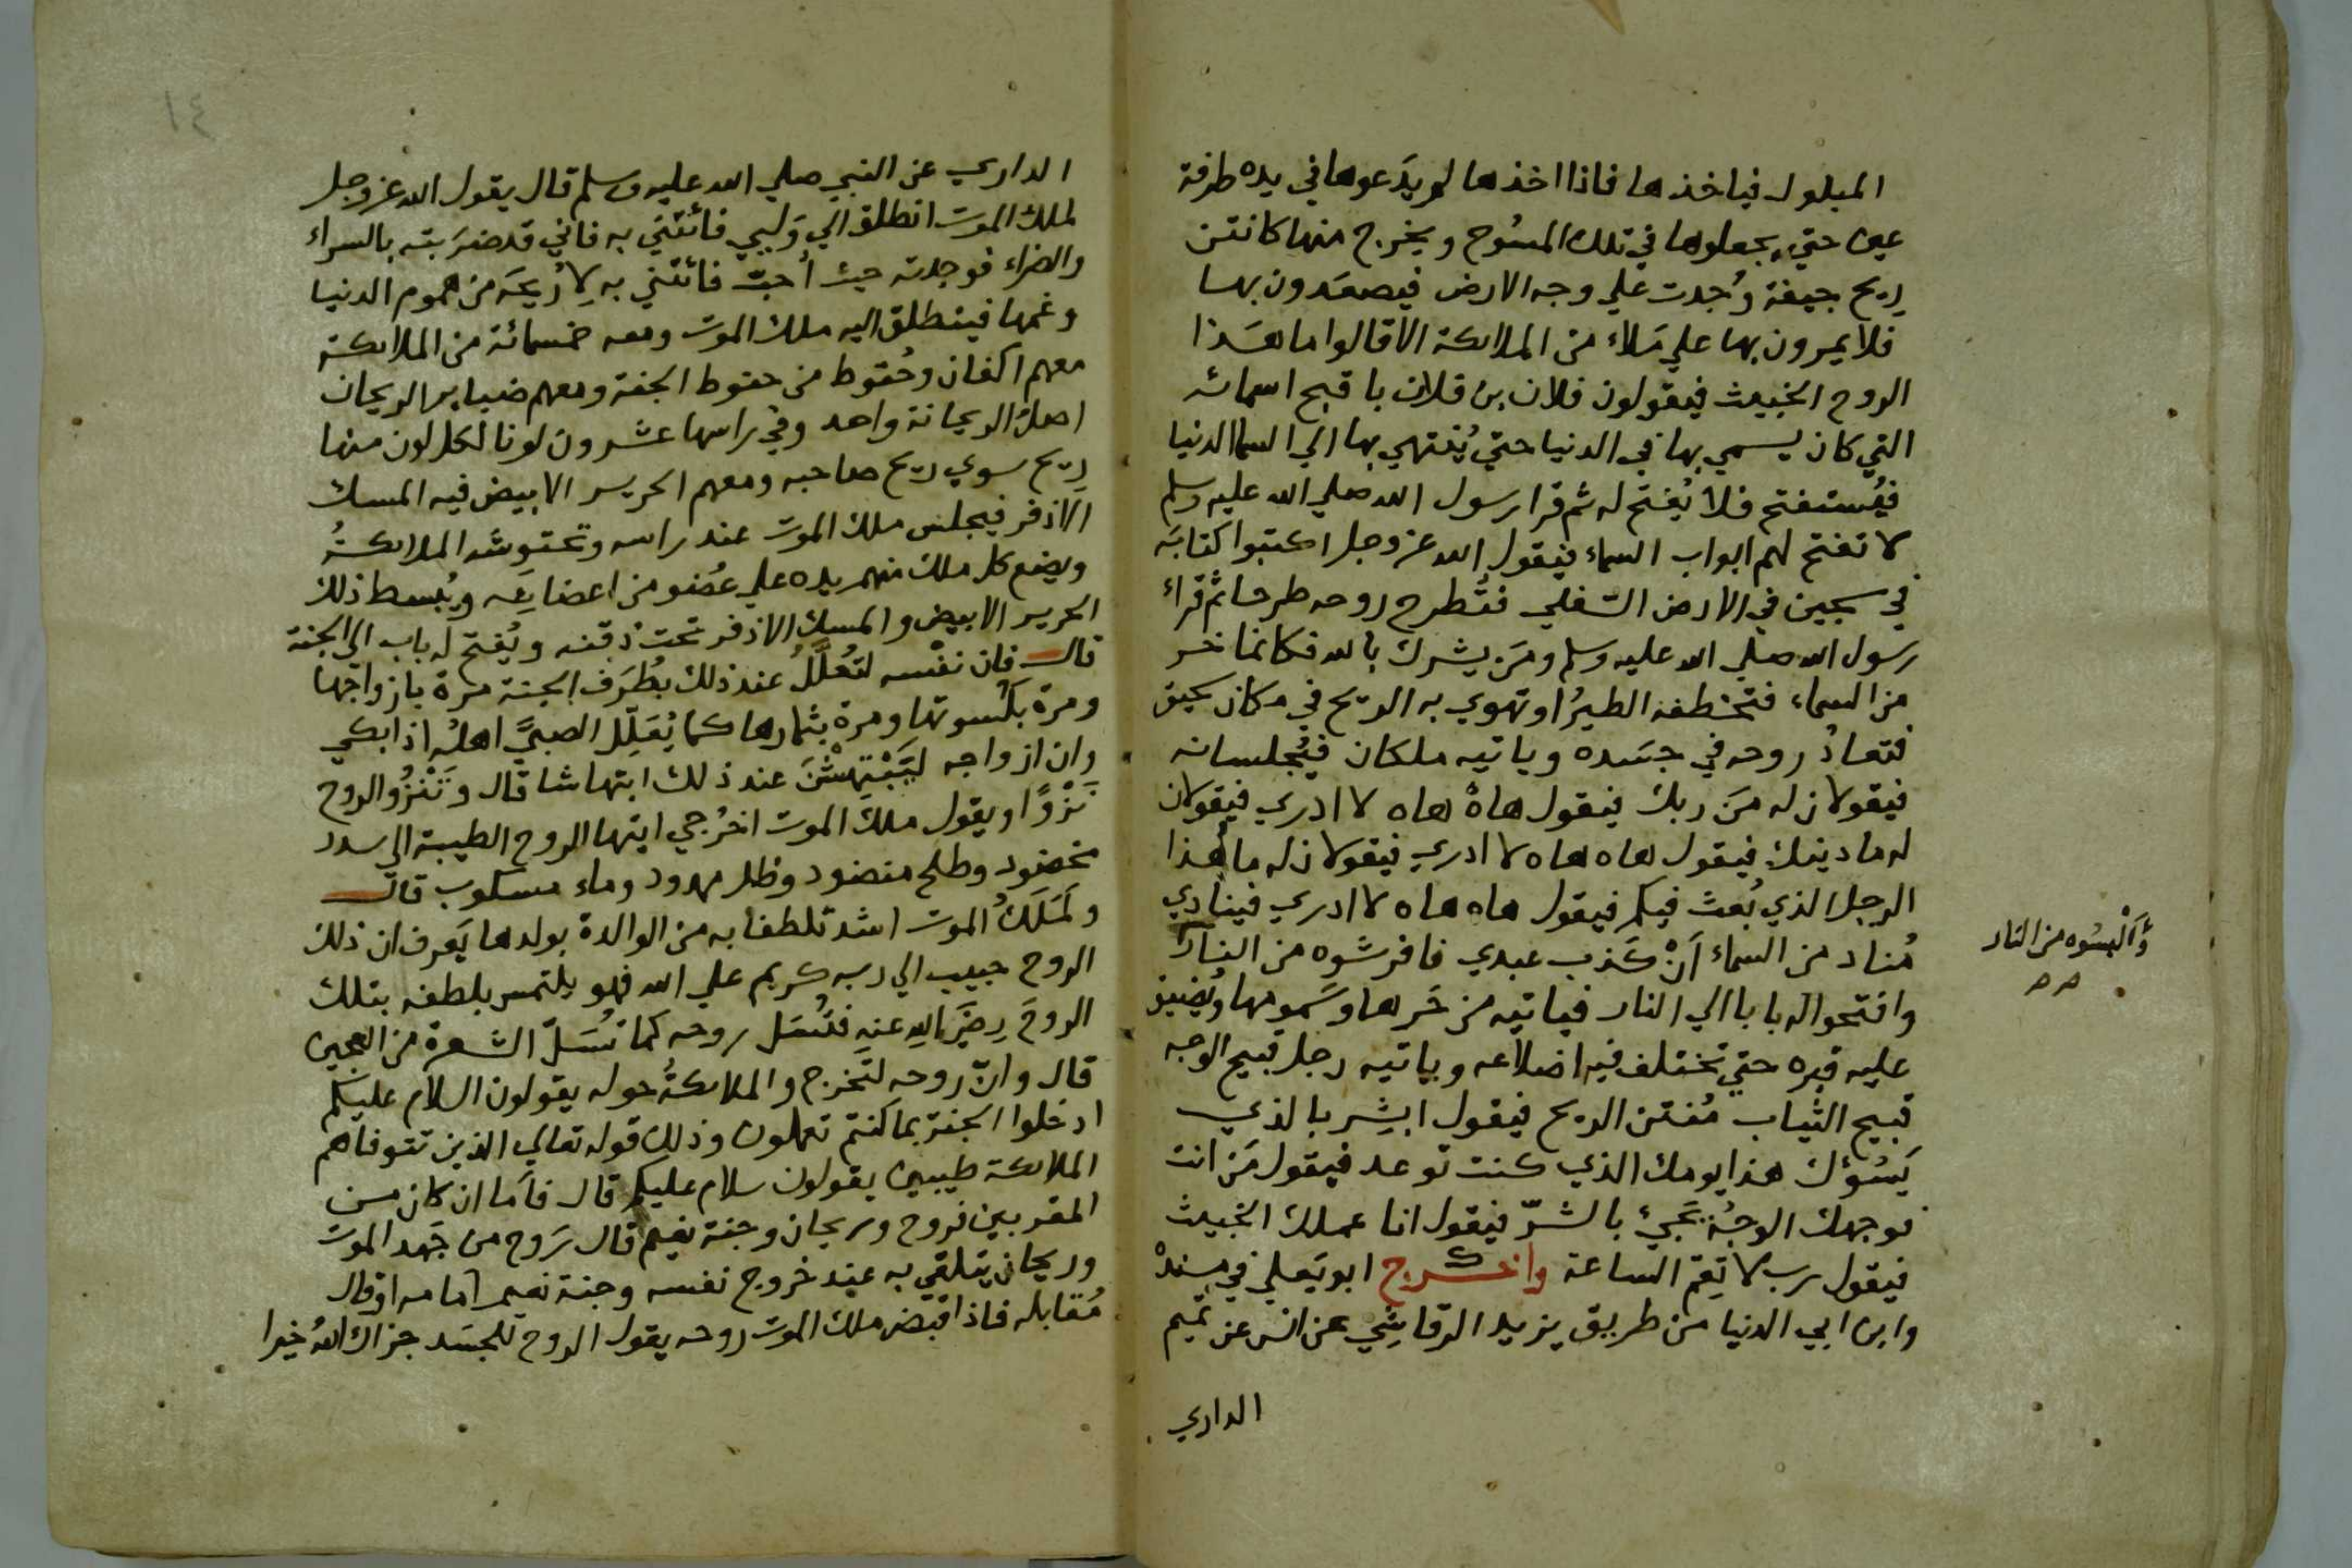 المبلول فياخذها فاذا اخذها لم يدَعوها في يده طرفة
عين حتي يجعلوها في تلك المسُوح ويخرج منها كانتن
ريح جيفة وُجدت علي وجه الارض فيصعَدون بها
فلا يمرون بها علي مَلاء من الملائكة الا قالوا ما هَذا
الروح الخبيث فيقولون فلان بن فلان باقبح اسمائه
التي كان يسمي بها في الدنيا حتي يُنتهي بها الي السما الدنيا
فيُستفتح فلا يُفتح له ثم قرا رسول الله صلي الله عليه وسلم
لا تفتح لهم ابواب السماء فيقول الله عز وجل اكتبوا كتابَه
في سجين في الارض السُفلي فتُطرح روحه طرحا ثم قراء
رسول الله صلي الله عليه وسلم ومَن يشرك بالله فكانما خر
من السماء فتخطفه الطيرُ او تهوي به الريح في مكان سحيق
فتعادُ روحه في جسَده وياتيه ملكان فيُجلسانه
فيقولان له مَن ربك فيقول هاهْ هاه لا ادري فيقولان
له ما دينك فيقول هاه هاه لا ادري فيقولان له ما هذا
الرجل الذي بُعث فيكم فيقول هاه هاه لا ادري فينادي
مُناد من السماء اَنْ كَذب عبدي فافرشوه من النار
وَاَلْبِسُوه من النار
صح
وافتحوا له بابا الي النار فياتيه من حَرها وسَمومها ويُضيق
عليه قبره حتي تختلف فيه اضلاعه وياتيه رجل قبيح الوجه
قبيح الثياب مُنتن الريح فيقول ابشِر بالذي
يَسُؤك هذا يومك الذي كنت توعد فيقول مَن انت
فوجهك الوجهُ يَجيئ بالشرّ فيقول انا عملك الخبيث
فيقول رب لا تقِم الساعة واخرج ابو يَعلي في مسنده
وابن ابي الدنيا من طريق يزيد الرقاشِي عن انس عن تميم
الداري
١٤
الداري عن النبي صلي الله عليه وسلم قال يقول الله عز وجل
لملك الموت انطلق الي وَليي فائتني به فاني قد ضرَبته بالسراء
والضراء فوجدته حيث اُحبّ فائتني به لِاُريحَه من هموم الدنيا
وغمها فينطلق اليه ملك الموت ومعه خمسمائة من الملائكة
معهم اكفان وحُنوط من حنوط الجنة ومعهم ضباير الريحان
اصلُ الريحانة واحد وفي راسها عشرون لونا لكل لون منها
ريح سوي ريح صاحبه ومعهم الحرير الابيض فيه المسك
الاذفر فيجلس ملك الموت عند راسه وتحتوِشه الملائكةُ
ويضع كل ملك منهم يده علي عضو من اعضايه ويُبسط ذلك
الحرير الابيض والمسك الاذفر تحت ذقنه ويُفتح له باب الي الجنة
قال فان نفْسه لتُعلَّلُ عند ذلك بطُرَف الجنة مرة بازواجها
ومرة بكسوتها ومرة بثمارها كما يُعَلِّل الصبيَّ اهلُه اذا بكي
وان ازواجه ليَبْتهِشْنَ عند ذلك ابتهاشا قال وتَنْزُو الروح
نَزْوًا ويقول ملكُ الموت اخرُجي ايتها الروح الطيبة الي سدر
مخضود وطلح منضود وظل ممدود وماء مسكوب قال
ولَمَلَكُ الموت اشد تلطفا به من الوالدة بولدها يَعرف ان ذلك
الروح حبيب الي ربه كريم علي الله فهو يلتمس بلطفه بتلك
الروحَ رِضَي اللهِ عنه فتُسَل روحه كما تُسَلّ الشعرة من العجين
قال وانّ روحه لتَخرج والملائكةُ حوله يقولون السلام عليكم
ادخلوا الجنة بما كنتم تعملون وذلك قوله تعالي الذين تتوفاهم
الملائكة طيبين يقولون سلام عليكم قال فاَما ان كان من
المقربين فروح وريحان وجنة نعيم قال رَوح من جَهد الموت
وريحان يتلقي به عند خروج نفسه وجنة نعيم امامه او قال
مُقابله فاذا اقبض ملك الموت روحه يقول الروح للجسَد جزاك اللهُ خيرا